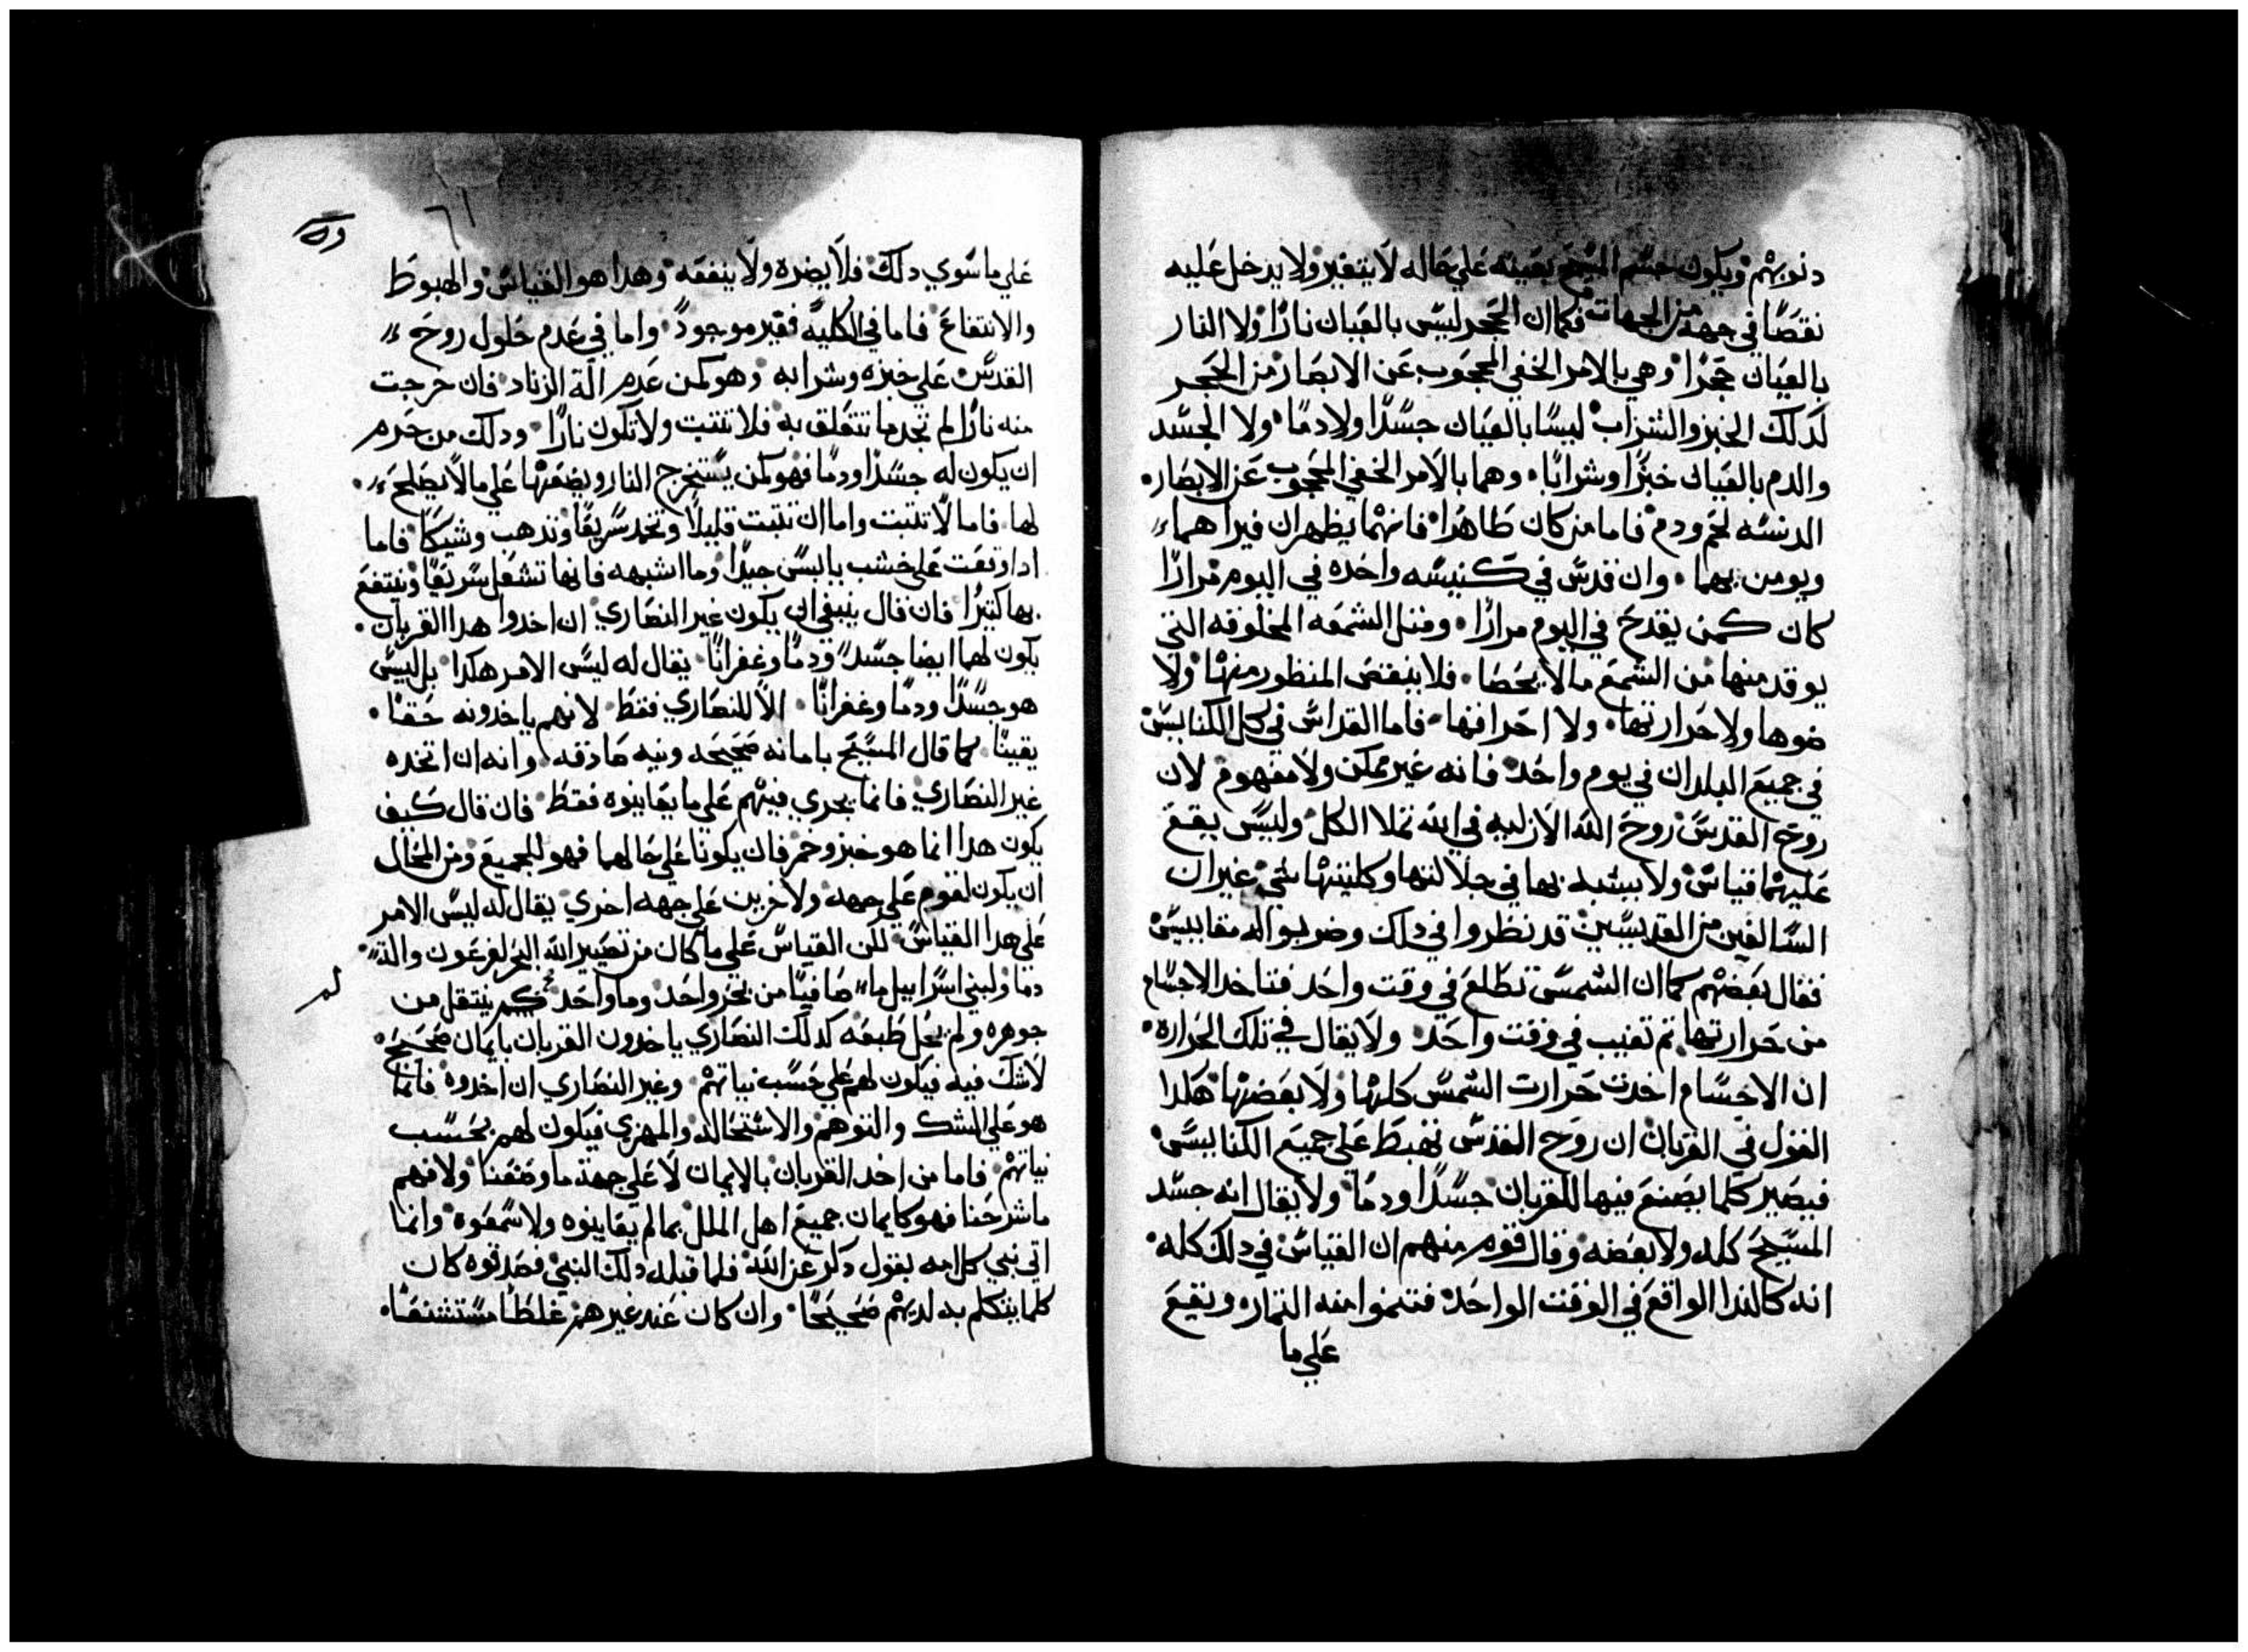 دنوبهم ويكون جسم المسيح بعينه علي حاله لا يتغير ولا يدخل عليه
نقصًا في جهه من الجهات فكما ان الحجر ليس بالعيان نارًا ولا النار
بالعيان حجرًا وهي بالامر الخفي المحجوب عن الابصار من الحجر
لدلك الخبز والشراب ليسا بالعيان جسدًا ولا دمًا ولا الجسد
والدم بالعيان خبزًا وشرابًا وهما بالامر الخفي المحجوب عن الابصار
الدنسه لحم ودم فاما من كان طاهرًا فانهما يظهران فيراهما
ويومن بهما وان قدس في كنيسه واحده في اليوم مرارًا
كان كمن يقدح في اليوم مرارًا ومثل الشمعه المخلوقه التي
يوقد منها من الشمع ما لا يحصا فلا ينقص المنظور منها ولا
ضوها ولا حرارتها ولا احراقها فاما القداس في كل الكنايس
في جميع البلدان في يوم واحد فانه غير ممكن ولا مفهوم لان
روح القدس روح الله الازليه في ايته تملا الكل وليس يقع
عليهما قياس ولا يشبه بها في جلالتها وكليتها شي غير ان
السالفين من القديسين قد نظروا في دلك وضربوا له مقاييس
فقال بعضهم كما ان الشمس تطلع في وقت واحد فتاخد الاجسام
من حرارتها تم تغيب في وقت واحد ولا يقال في تلك الحراره
ان الاجسام اخدت حرارت الشمس كلها ولا بعضها هكدا
القول في القربان ان روح القدس تهبط علي جميع الكنايس
فيصير كلما يصنع فيها للقربان جسدًا ودمًا ولا يقال انه جسد
المسيح كله ولا بعضه وقال قوم منهم ان القياس في دلك كله
انه كالندا الواقع في الوقت الواحد فتنموا منه التمار ويقع
علي ما
٦١
علي ما سوي دلك فلا يضره ولا ينفعه وهدا هو القياس والهبوط
والانتفاع فاما في الكليه فغير موجودً واما في عدم حلول روح
القدس علي خبزه وشرابه وهو كمن عدم الة الزناد فان خرجت
منه نارًا لم تجد ما تتعلق به فلا تتبت ولا تكون نارًا ودلك من حرم
ان يكون له جسدًا ودمًا فهو كمن يستخرج النار ويضعها علي ما لا يصلح
لها فاما لا تتبت واما ان تتبت قليلًا وتخمد سريعًا وتدهب وشيكًا فاما
ادا وقعت علي خشب يابس جيدًا وما اشبهه فانها تشعل سريعًا وينتفع
بها كتيرًا فان قال ينبغي ان يكون غير النصاري ان اخدوا هدا القربان
يكون لهما ايضا جسدً ودمًا وغفرانًا يقال له ليس الامر هكدا بل ليس
هو جسدًا ودمًا وغفرانًا الا للنصاري فقط لانهم ياخدونه حقًا
يقينًا كما قال المسيح بامانه صحيحه ونيه صادقه وانه ان اتخده
غير النصاري فانما يجري فيهم علي ما يعاينوه فقط فان قال كيف
يكون هدا انما هو خبز وخمر فان يكونا علي حالهما فهو للجميع ومن المحال
ان يكون لقوم علي جهه ولاخرين علي جهه اخري يقال له ليس الامر
علي هدا القياس لكن القياس علي ما كان من تصيير الله البحر لفرعون واله
دمًا ولبني اسراييل ماً صافيًا من بحر واحد وما واحد لم ينتقل من
لم
جوهره ولم يحل طبعه كدلك النصاري ياخدون القربان بايمان صحيح
لا شك فيه فيكون لهم علي حسب نياتهم وغير النصاري ان اخدوه فانما
هو علي الشك والتوهم والاستحاله والهزي فيكون لهم بحسب
نياتهم فاما من اخد القربان بالايمان لا علي جهة ما وصفنا ولا فهم
ما شرحنا فهو كايمان جميع اهل الملل بما لم يعاينوه ولا سمعوه وانما
اتي نبي كل امه بقول دكر عن الله فلما قبله دلك النبي فصدقوه كان
كلما يتكلم به لديهم صحيحًا وان كان عند غيرهم غلطًا مستشنعًا